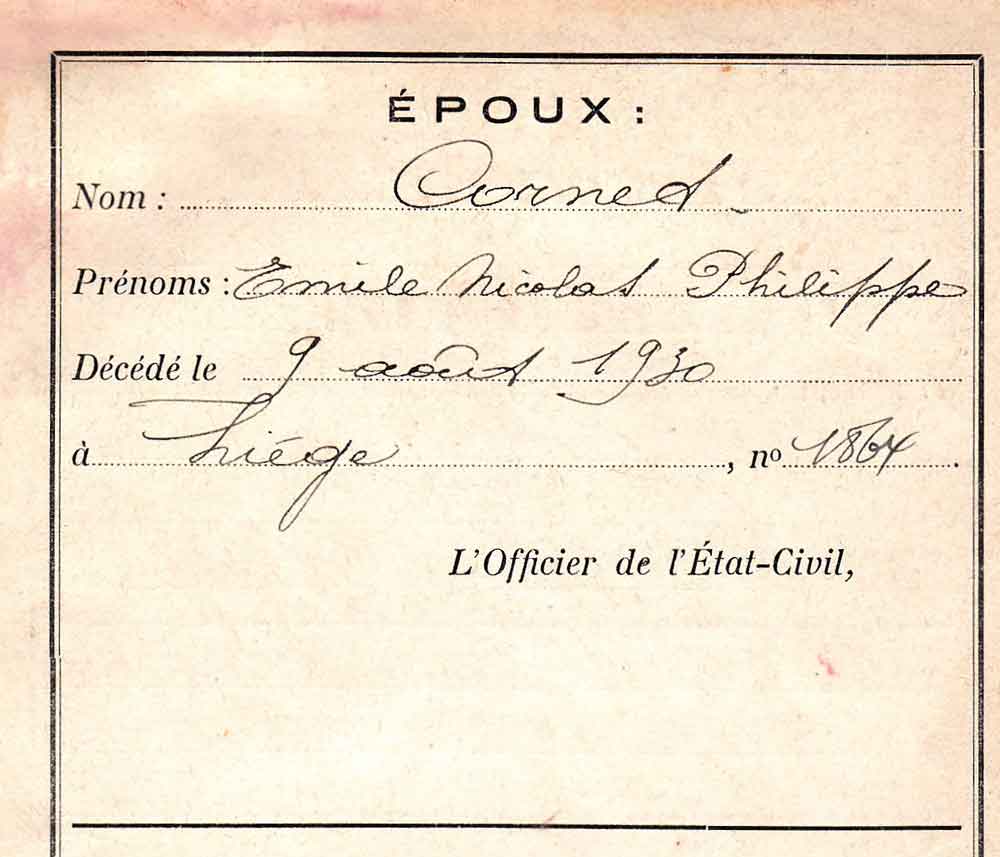 ÉPOUX :
Nom : Cornet
Prénoms : Emile Nicolas Philippe
Décédé le 9 août 1930
à Liége, nº 1864.
L'Officier de l'État-Civil,